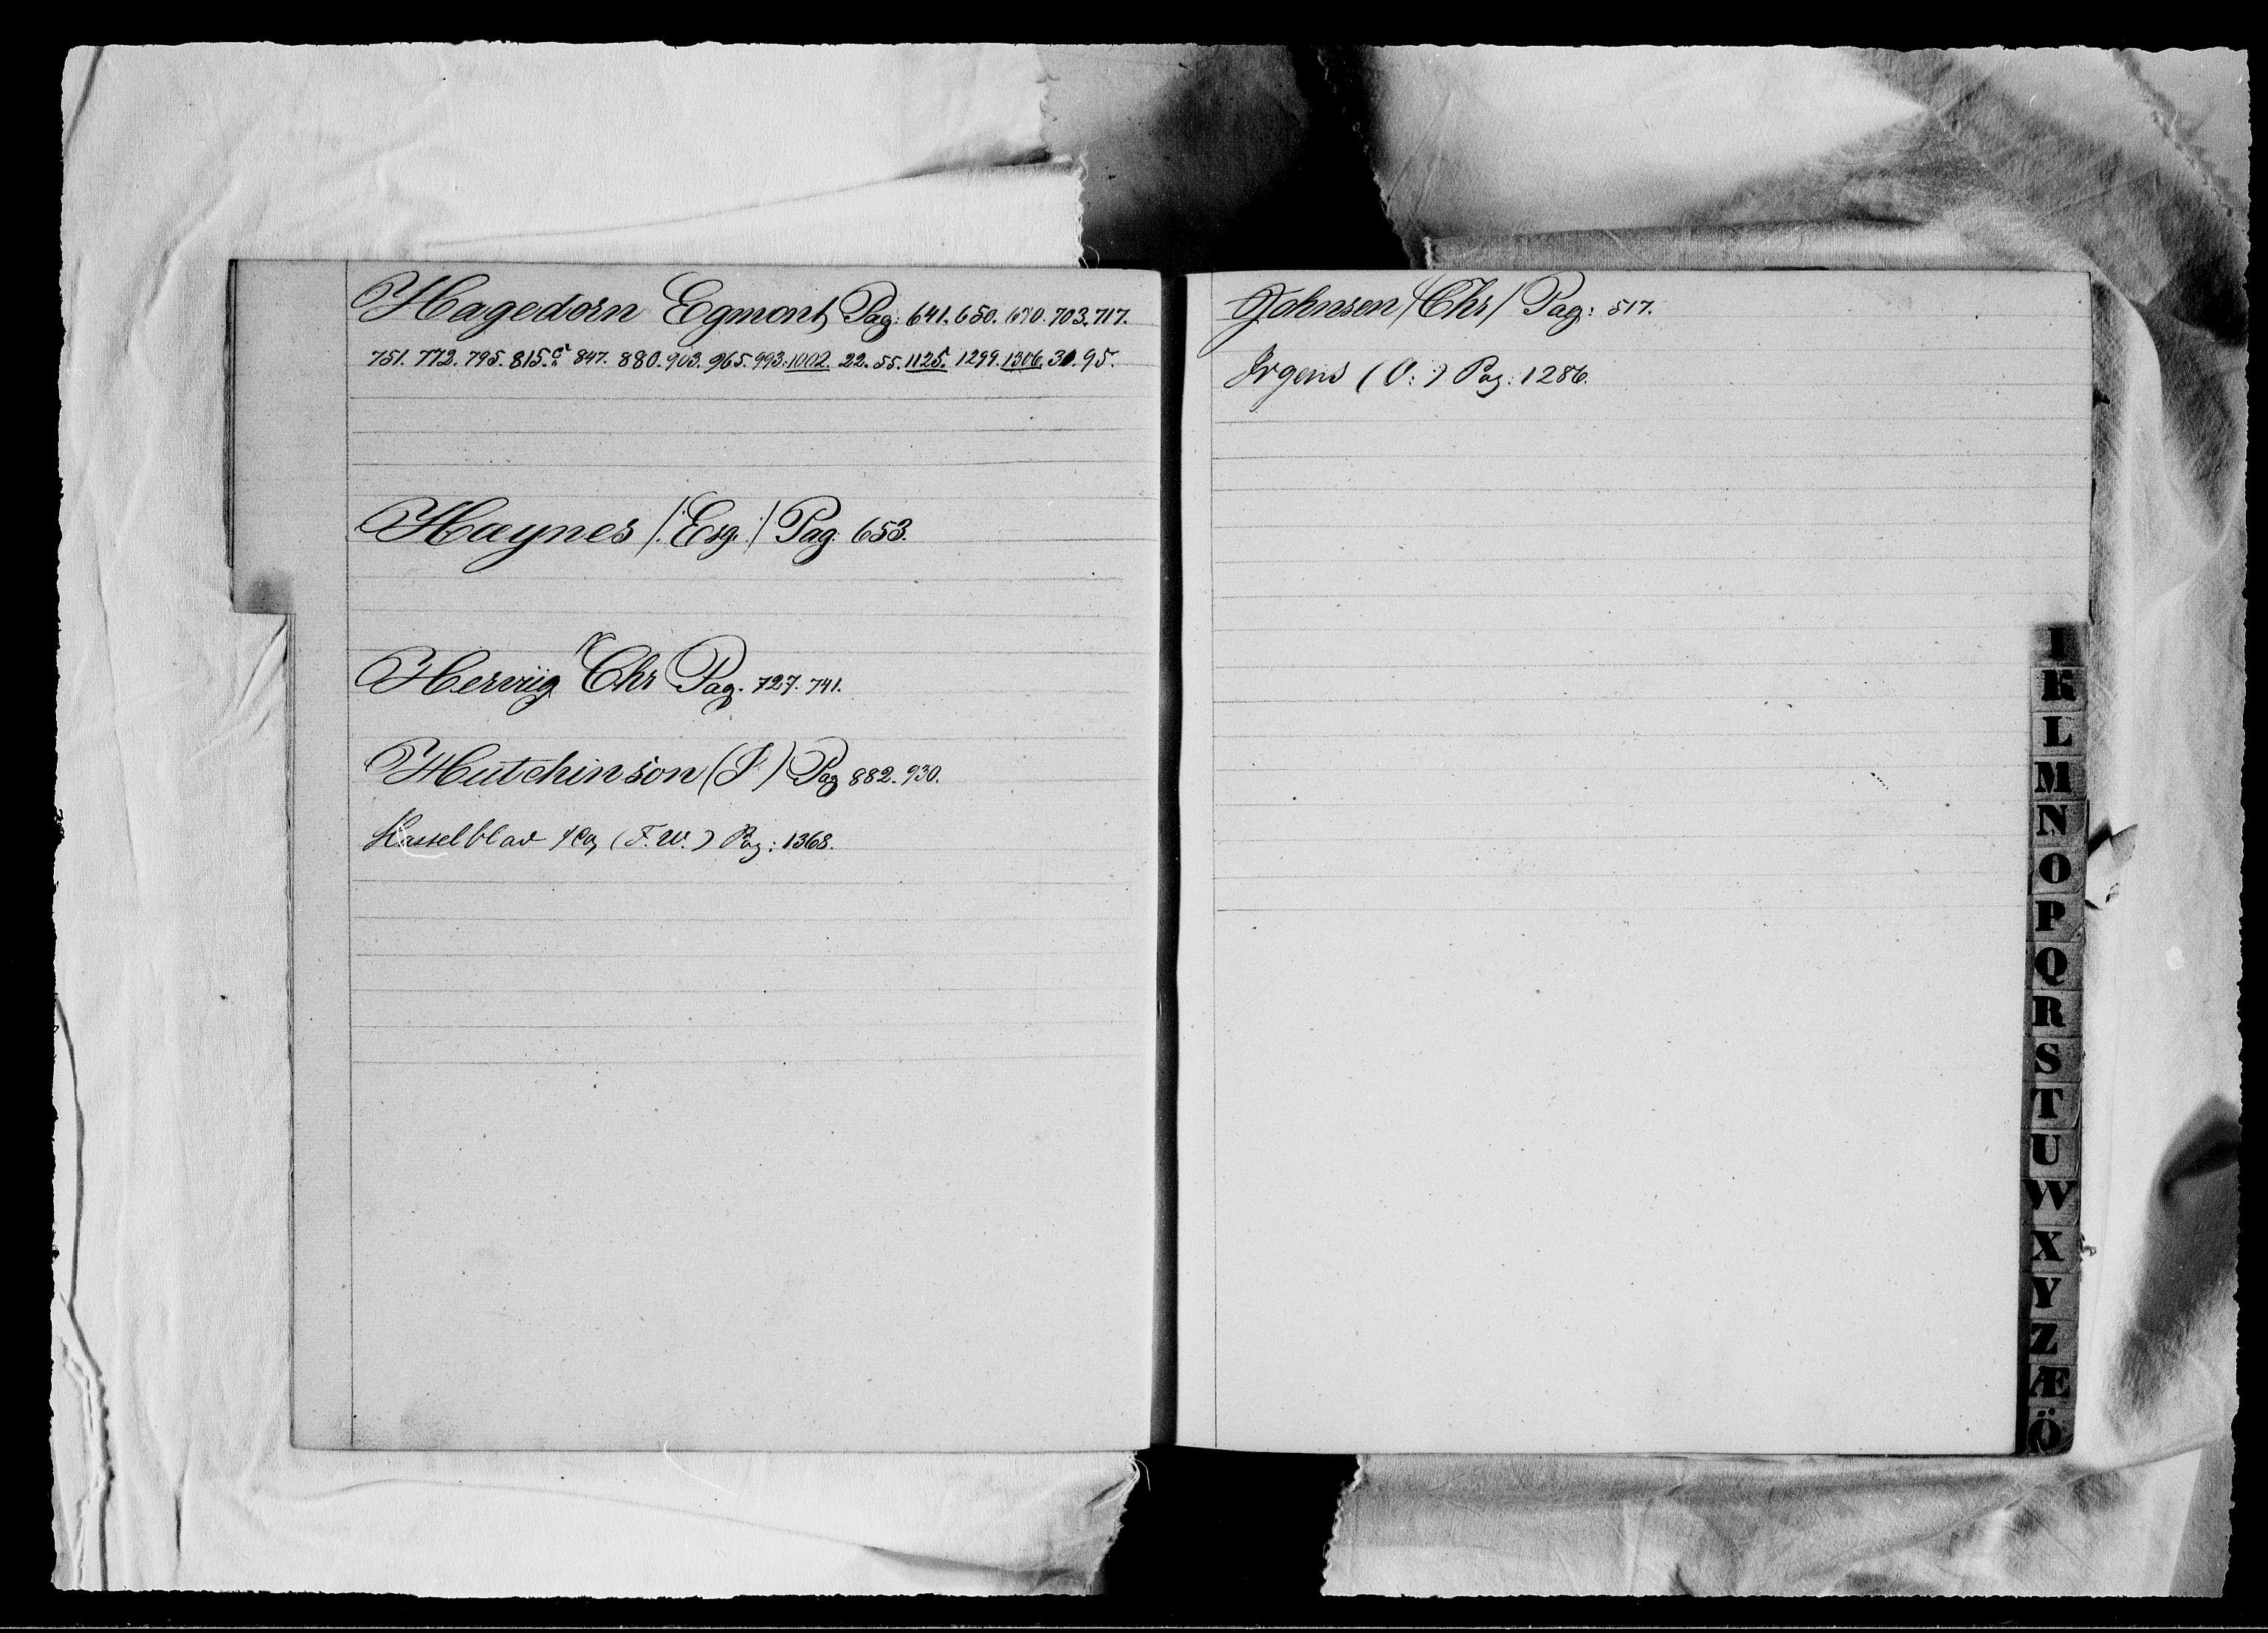 Hagedorn Egmont, Pag: 641. 650. 670. 703. 717.
751. 772. 795. 815.a 847. 880. 903. 965. 993. 1002. 22. 55. 1125. 1299. 1306. 30. 95.
Haynes /: Esq. :/ Pag: 653.
Herwig Chr Pag. 727. 741.
Hutchinson (J) Pag 882. 930.
Hasselblad (F. W.) Pag: 1368.
Johnsen /Chr/ Pag: 517.
Irgens (O:) Pag: 1286.
I
K
L
M
N
O
P
Q
R
S
T
U
W
X
Y
Z
Æ
Ö